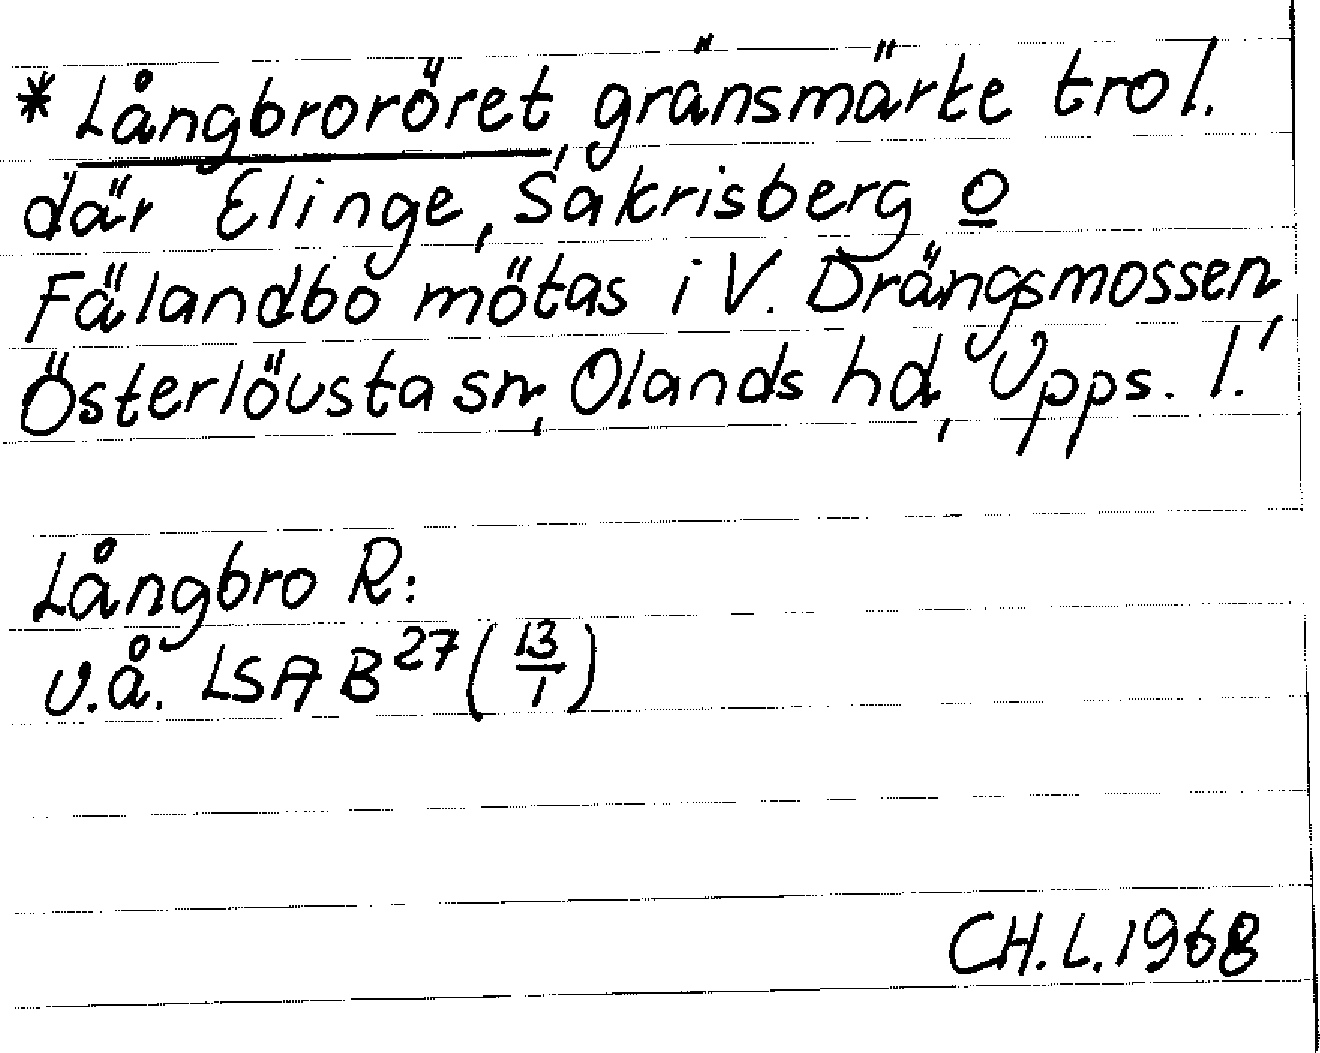 * Långbroröret, gränsmärke trol.
där Elinge, Sakrisberg o
Fälandbo mötas i V. Drängsmossen,
Österlövsta sn, Olands hd, Upps. l.
Långbro R:
u.å. LSA B²⁷ (13/1)
CH.L.1968